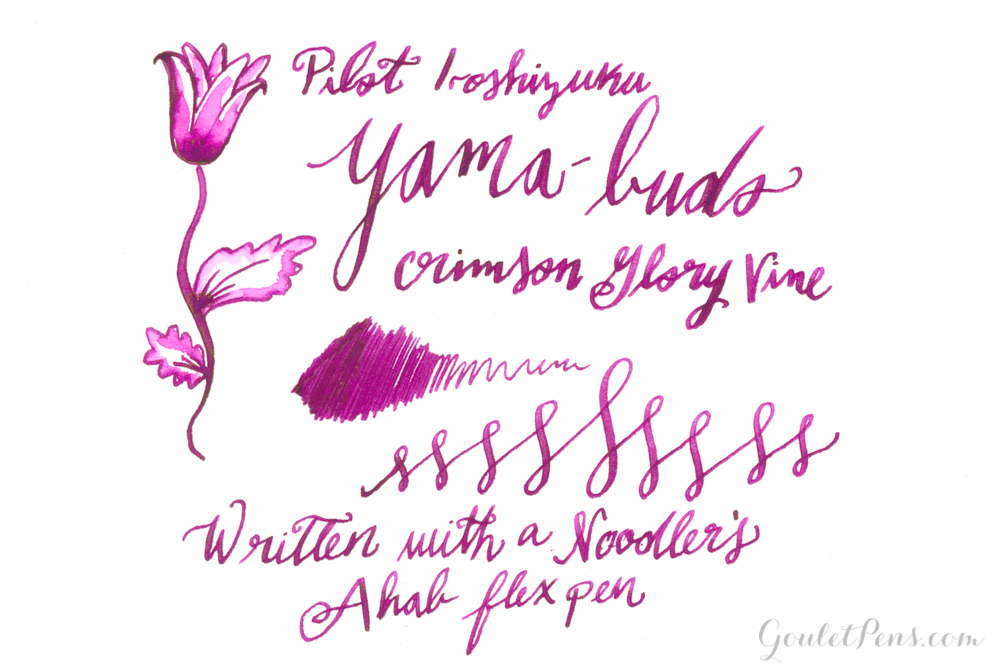 Pilot Iroshizuku
Yama-budo
Crimson Glory Vine
ssssSsssss
Written with a Noodler's
Ahab flex pen
GouletPens.com